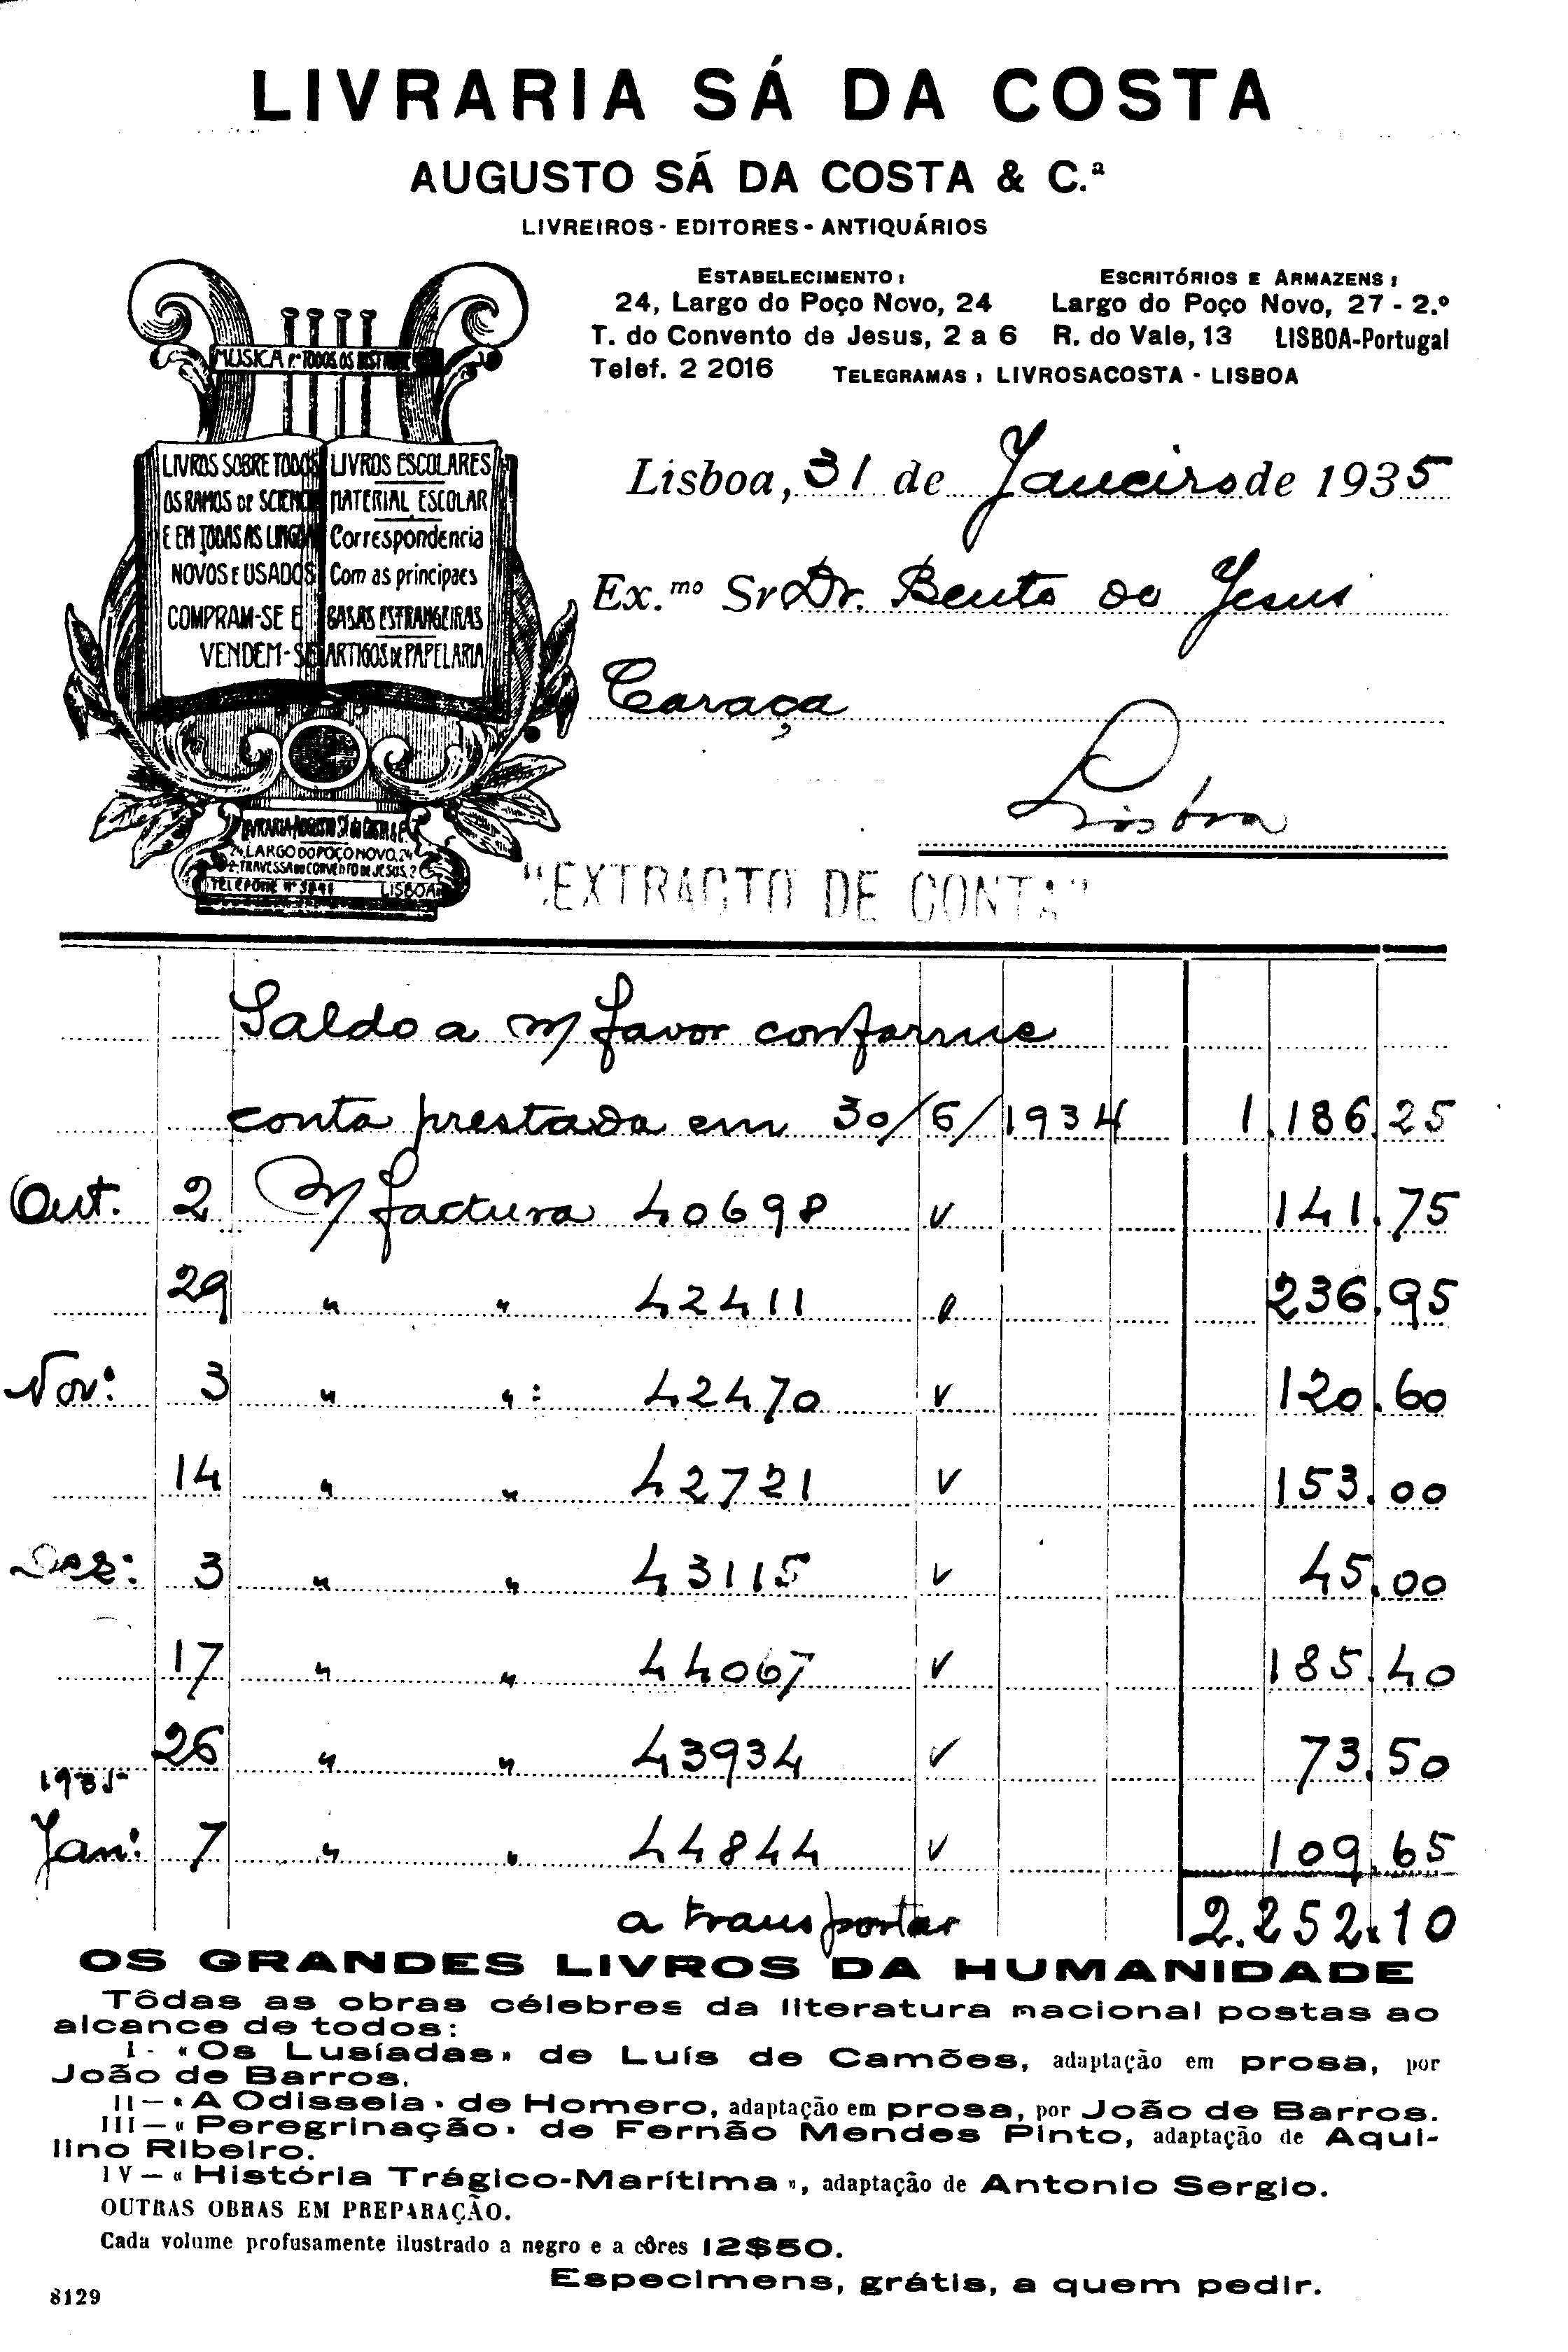 LIVRARIA SÁ DA COSTA
AUGUSTO SÁ DA COSTA & C.ª
LIVREIROS - EDITORES - ANTIQUÁRIOS
ESTABELECIMENTO:
24, Largo do Poço Novo, 24
T. do Convento de Jesus, 2 a 6
Telef. 2 2016
ESCRITÓRIOS E ARMAZENS:
Largo do Poço Novo, 27 - 2.º
R. do Vale, 13 LISBOA-Portugal
TELEGRAMAS: LIVROSACOSTA - LISBOA
MUSICA Pª TODOS OS
LIVROS SOBRE TODOS
OS RAMOS DE SCIENC
E EM TODAS AS LINGOA
NOVOS E USADOS
COMPRAM-SE E
VENDEM-SE
LIVROS ESCOLARES
MATERIAL ESCOLAR
Correspondencia
Com as principaes
CASAS ESTRANGEIRAS
ARTIGOS DE PAPELARIA
LIVRARIA AUGUSTO SÁ DA COSTA & Cª
24, LARGO DO POÇO NOVO, 24
2-TRAVESSA DO CONVENTO DE JESUS, 2
TELEFONE Nº LISBOA
Lisboa, 31 de Janeiro de 1935
Ex.mo Sr Dr. Bento de Jesus
Caraça
Lisboa
"EXTRACTO DE CONTA"
Saldo a m/ favor conforme
conta prestada em 30/6/1934 1.186.25
Out. 2 M/ factura 40698 v 141.75
29 " " 42411 v 236.95
Nov: 3 " " : 42470 v 120.60
14 " " 42721 v 153.00
Dez: 3 " " 43115 v 45.00
17 " " 44067 v 185.40
26 " " 43934 v 73.50
1935
Jan: 7 " " 44844 v 109.65
a transportar 2.252.10
OS GRANDES LIVROS DA HUMANIDADE
Tôdas as obras célebres da literatura nacional postas ao
alcance de todos:
I - «Os Lusíadas» de Luís de Camões, adaptação em prosa, por
João de Barros.
II — «A Odisseia» de Homero, adaptação em prosa, por João de Barros.
III — «Peregrinação» de Fernão Mendes Pinto, adaptação de Aqui-
lino Ribeiro.
IV — «História Trágico-Marítima», adaptação de Antonio Sergio.
OUTRAS OBRAS EM PREPARAÇÃO.
Cada volume profusamente ilustrado a negro e a côres 12$50.
Especimens, grátis, a quem pedir.
8129